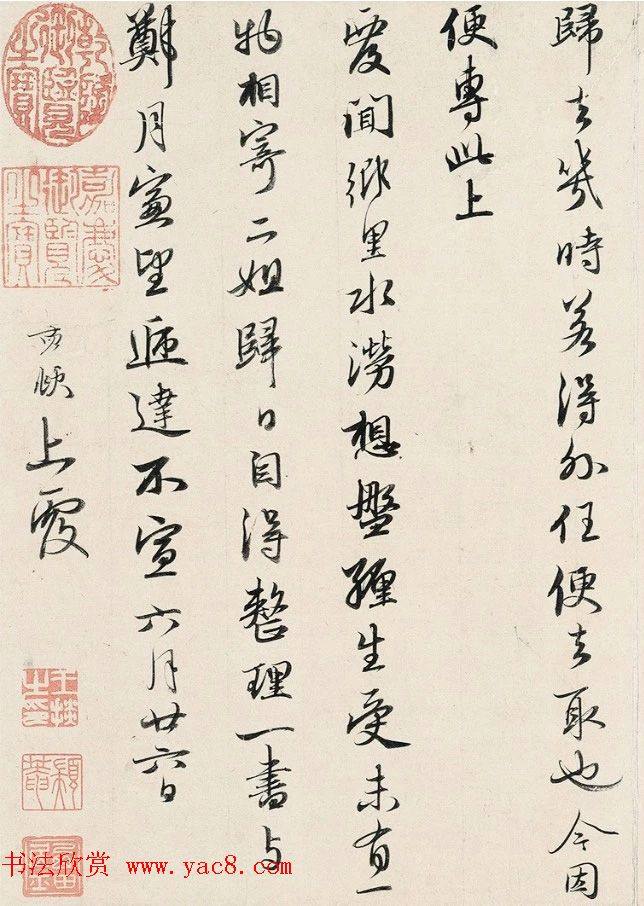 歸去幾時若得外任便去取也今因
便專此上
覆聞鄉里水澇想盤纏生受未有一
物相寄二姐歸日自得整理一書與
鄭月窗望遞達不宣六月廿六日
上覆
乾隆御覽之寶
嘉慶御覽之寶
王掞之印
书法欣赏 www.yac8.com